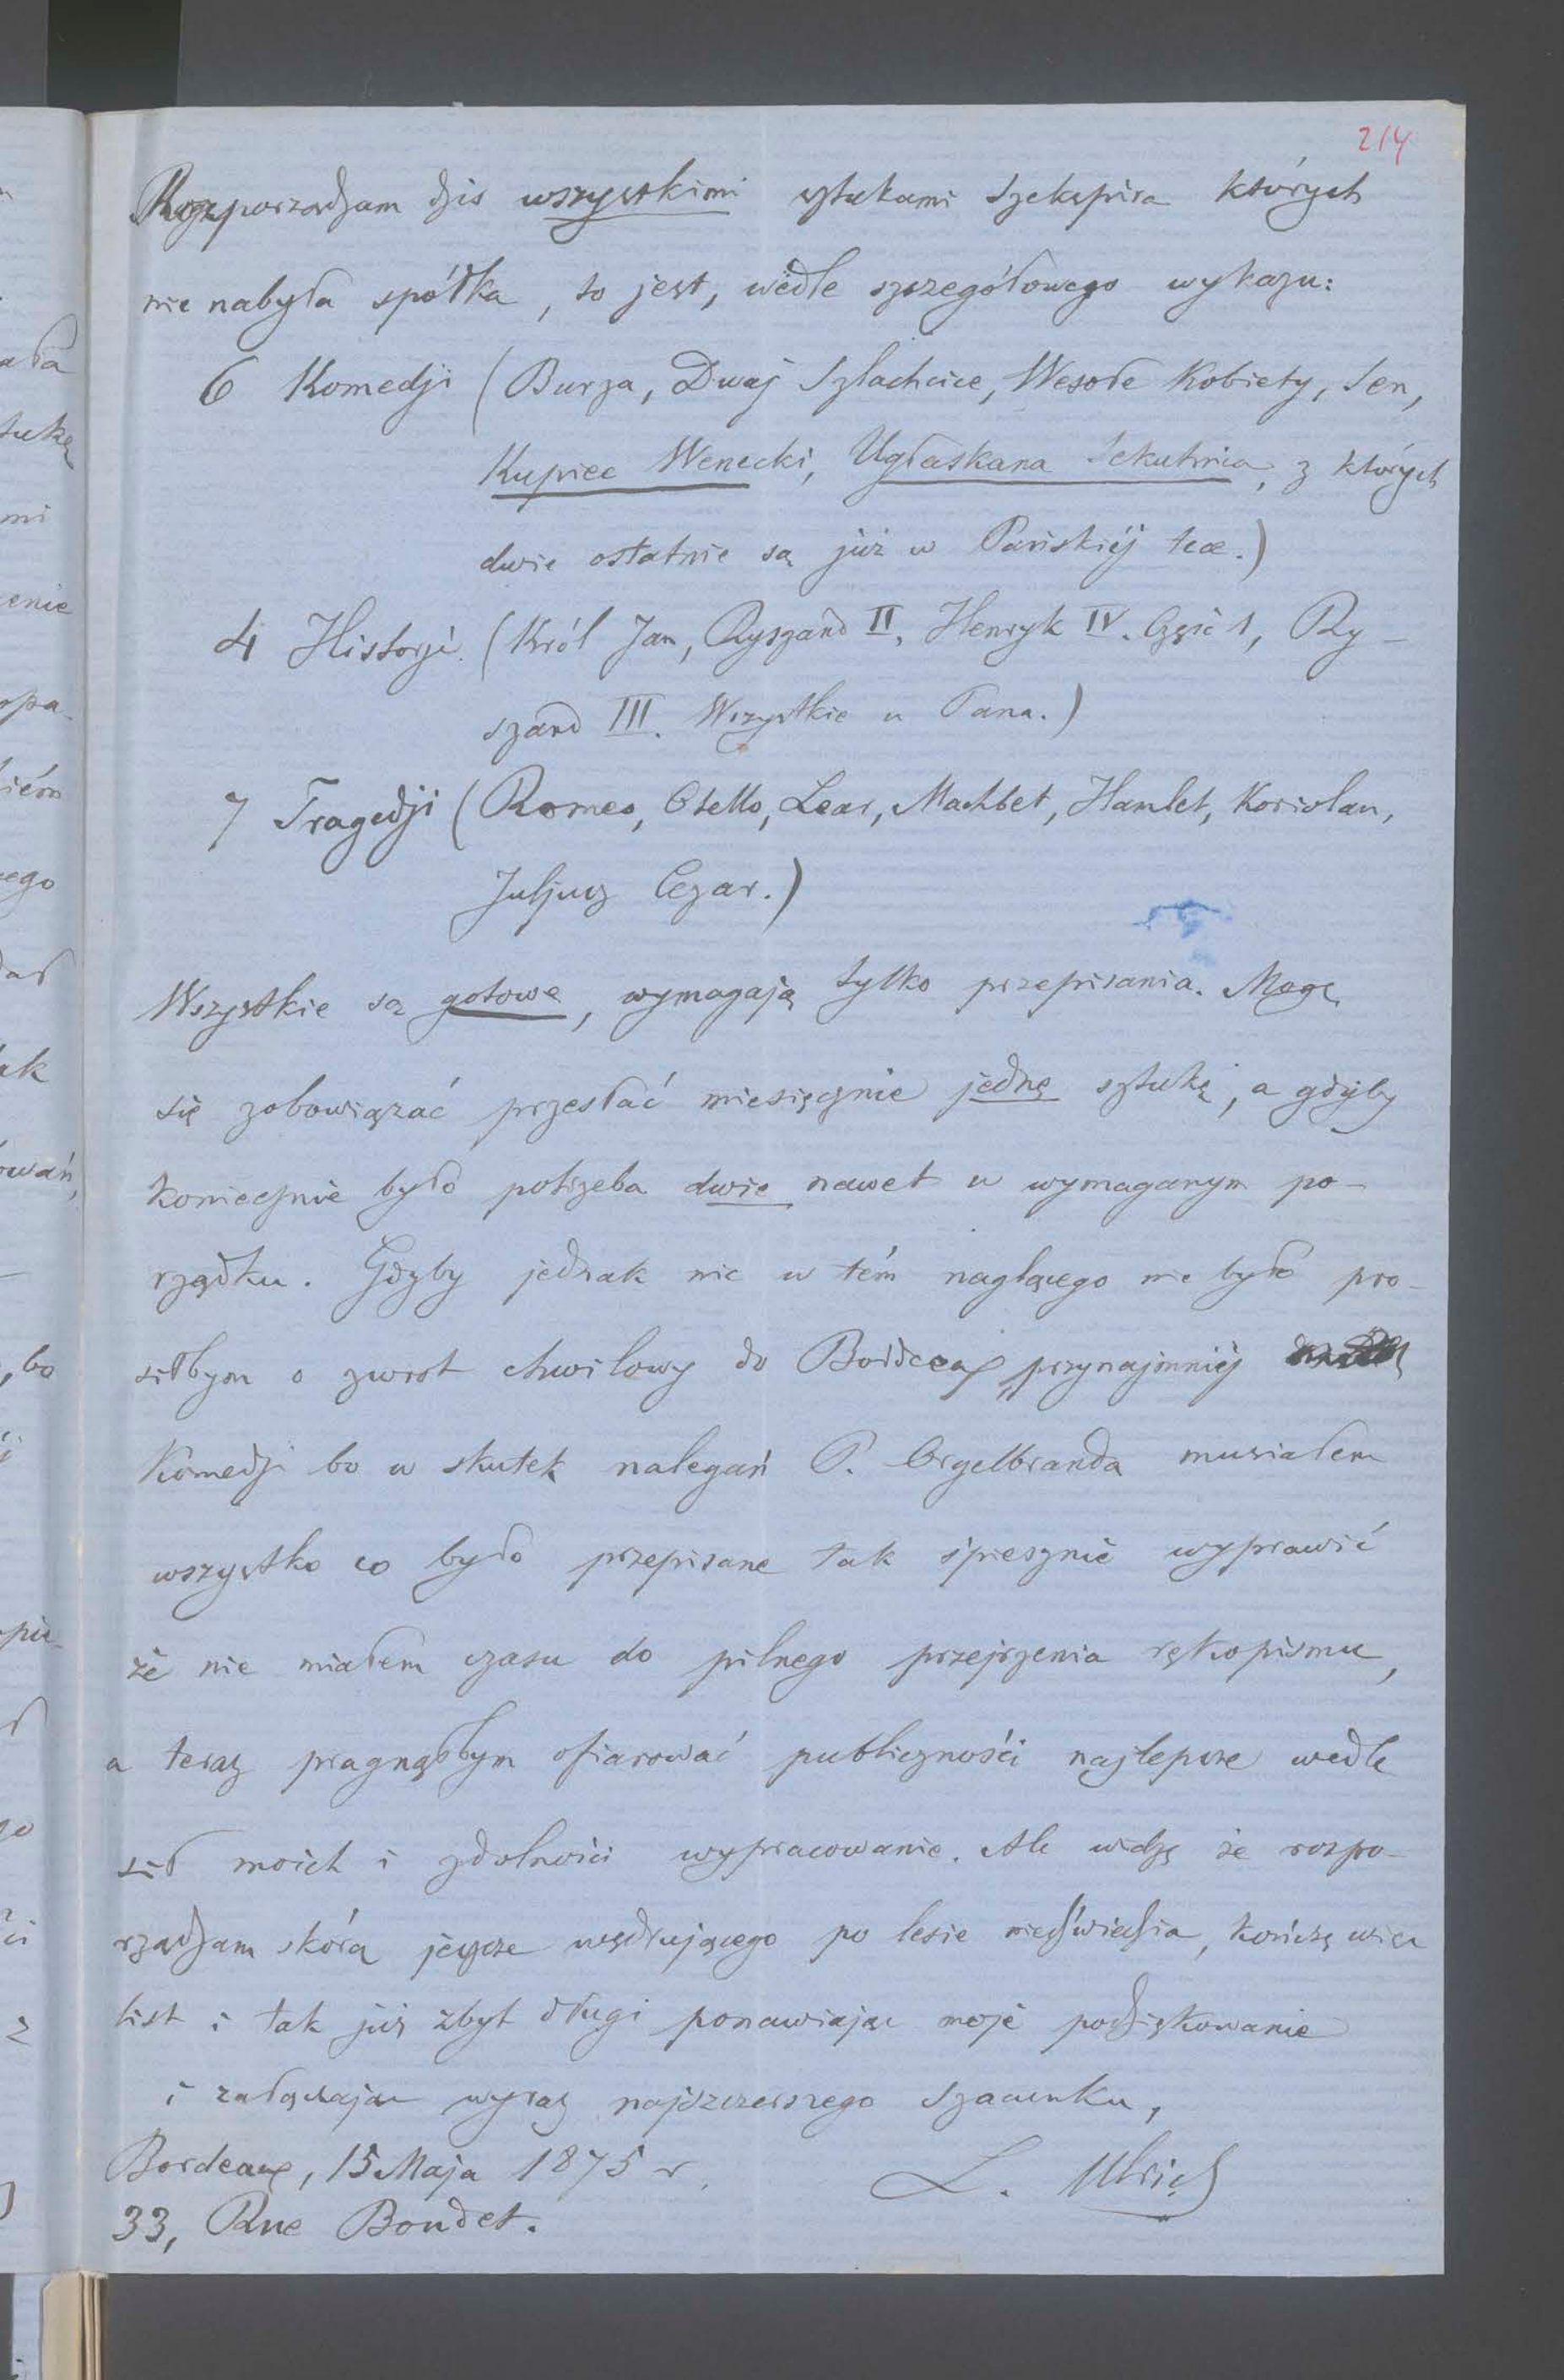 214
Rozporządzam dziś wszystkimi sztukami Szekspira których
nie nabyła spółka, to jest, wedle szczegółowego wykazu:
6 Komedji (Burza, Dwaj Szlachcice, Wesołe Kobiety, Sen,
Kupiec Wenecki, Ugłaskana Sekutnica, z których
dwie ostatnie są już w Pańskiéj tece.)
4 Historje (Król Jan, Ryszard II, Henryk IV. Część 1, Ry-
szard III. Wszystkie u Pana.)
7 Tragedji (Romeo, Otello, Lear, Makbet, Hamlet, Koriolan,
Juljusz Cezar.)
Wszystkie są gotowe, wymagają tylko przepisania. Mogę
się zobowiązać przesłać miesięcznie jednę sztukę, a gdyby
koniecznie było potrzeba dwie nawet w wymaganym po-
rządku. Gdyby jednak nic w tém naglącego nie było pro-
siłbym o zwrot chwilowy do Bordeaux przynajmniéj
Komedji bo w skutek nalegań P. Orgelbranda musiałem
wszystko co było przepisane tak śpiesznie wyprawić
że nie miałem czasu do pilnego przejrzenia rękopismu,
a teraz pragnąłbym ofiarować publiczności najlepsze wedle
sił moich i zdolności wypracowanie. Ale widzę że rozpo-
rządzam skórą jeszcze wędrującego po lesie niedźwiedzia, kończę więc
list i tak już zbyt długi ponawiając moje podziękowanie
i załączając wyraz najszczerszego szacunku,
Bordeaux, 15 Maja 1875 r.
L. Ulrich
33, Rue Boudet.